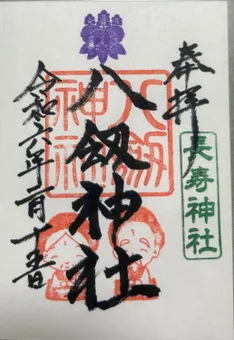 奉拝
長寿神社
八剱神社
八剱神社
令和六年二月十五日